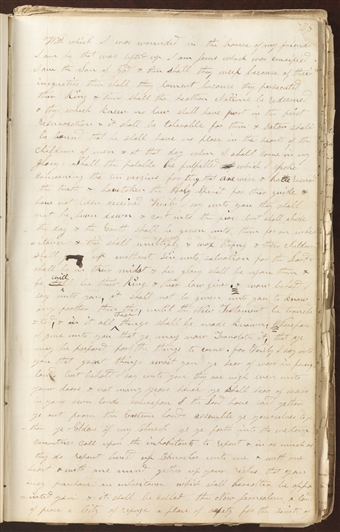 With which I was wounded in the house of my friends
I am he that was lifted up I am Jesus which was crucified
I am the Son of God & then shall they weep because of their
iniquities then shall they lament because they persecuted
their King & then shall the heathen Nations be redeemed
& they which knew no law shall have part in the first
Resurrection & it shall be tolerable for them & Satan shall
be bound that he shall have no place in the hearts of the
children of men & at that day when I shall come in my
glory shall the parable be fulfilled which I spake
concerning the ten virgins for they that are wise & have received
the truth & have taken the Holy Spirit for their guide &
have not been deceived Verily I say unto you they shall
not be hewn down & cast into the fire but shall abide
the day & the Earth shall be given unto them for an inheritance
& they shall multiply & wax strong & their children
shall grow up without Sin unto salvation for the Lord
shall be in their midst & his glory shall be upon them &
he will be their King & their Law giver & now behold I
say unto you it shall not be given unto you to know
any farther than this until the New Testament be translated
& in it all these things shall be made known wherefore
I give unto you that ye may now Translate it that ye
may be prepared for the things to come for Verily I say unto
you that great things await you ye hear of wars in foreign
lands but behold I say unto you they are nigh even unto
your doors & not many years hence ye shall hear of wars
in your own lands wherefore I the Lord have said gather
ye out from the Eastern lands assemble ye yourselves together
ye Elders of my Church go ye forth into the western
countries call upon the inhabitants to repent & in as much as
they do repent build up Churches unto me & with one
heart & with one mind gather up your riches that ye
may purchase an inheritance which shall hereafter be appointed
you & it shall be called the New Jerusalem a land
of peace a City of refuge a place of safety for the saints of